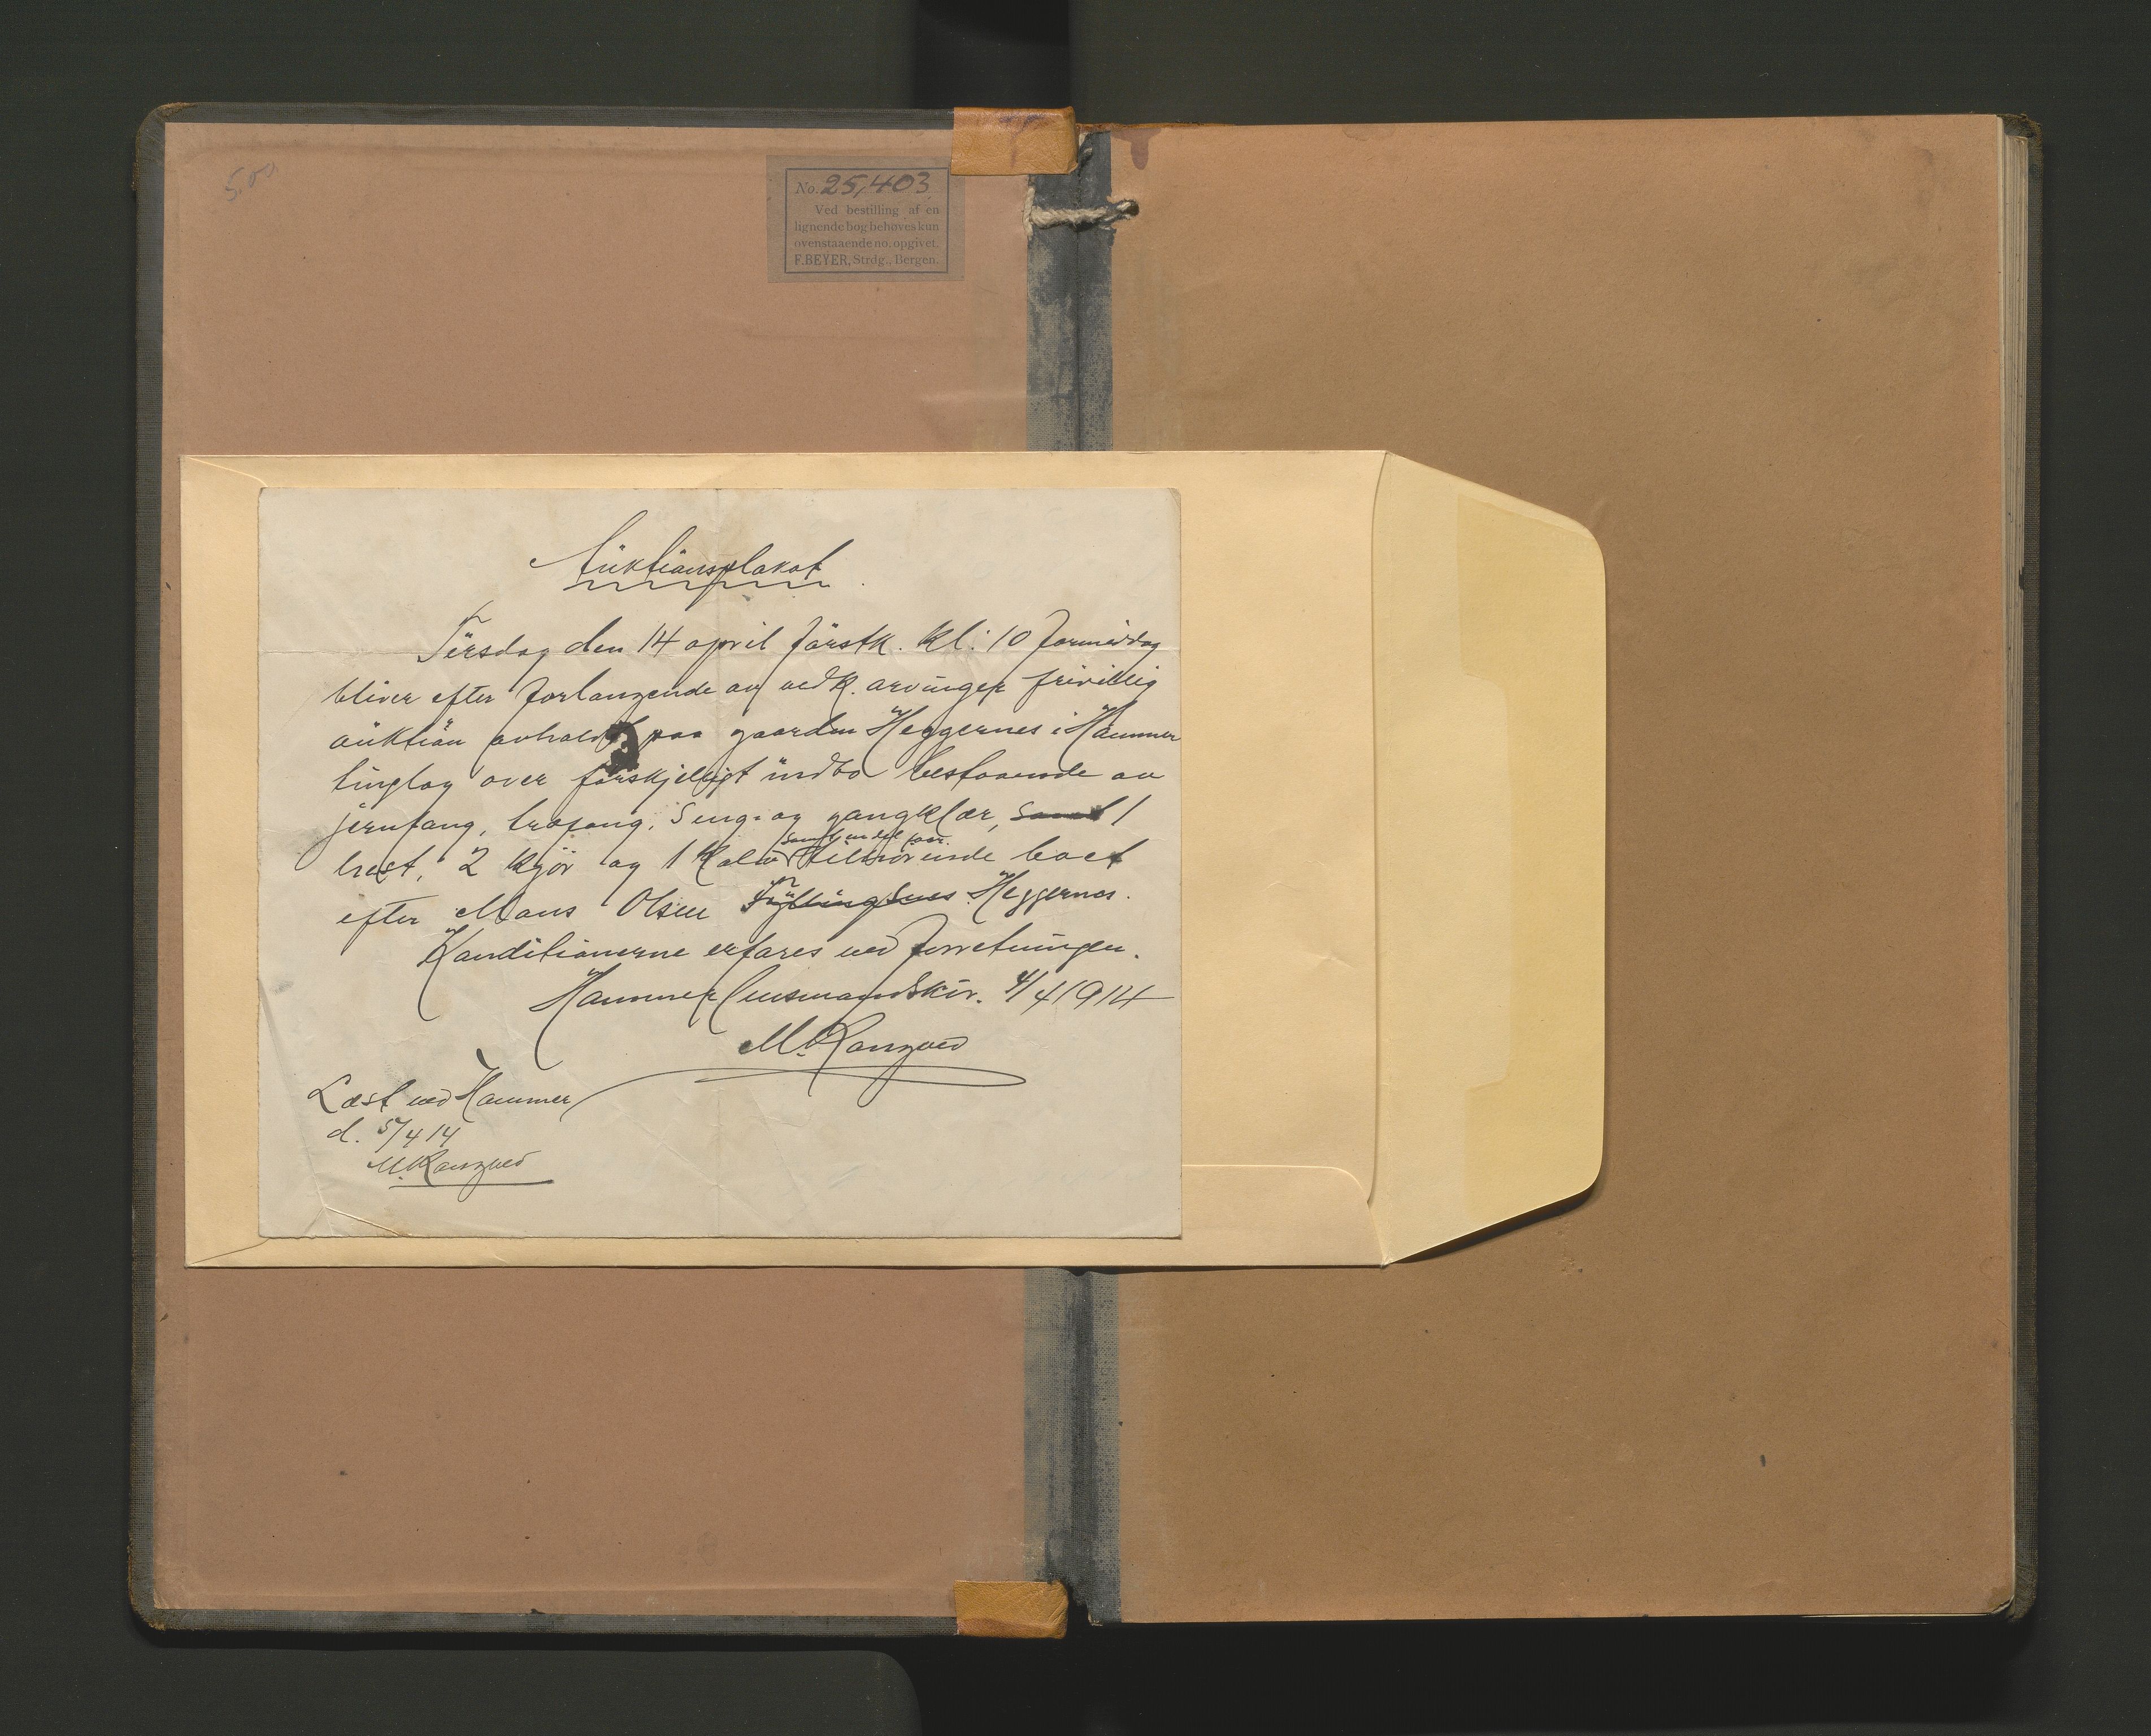 5.00
No. 25,403
Ved bestilling af en
lignende bog behøves kun
ovenstaaende no. opgivet.
F. BEYER, Strdg., Bergen.
Auktionsplakat
Tirsdag den 14 april förstk. kl: 10 formiddag
bliver efter forlangende av vedk. arvinger frivillig
auktion avholdt paa gaarden Heggernes i Hammer
tinglag over forskjelligt indbo bestaaende av
jernfang, træfang, Seng- og gangklær, samt 1
hest, 2 kjör og 1 Kalv samt en del faar. tilhörende boet
efter Mons Olsen Heggernes.
Konditionerne erfares ved forretningen.
Hammer lensmandskır. 4/4 1914
M. Rangved
Læst ved Hammer
d. 5/4 14
M. Rangved